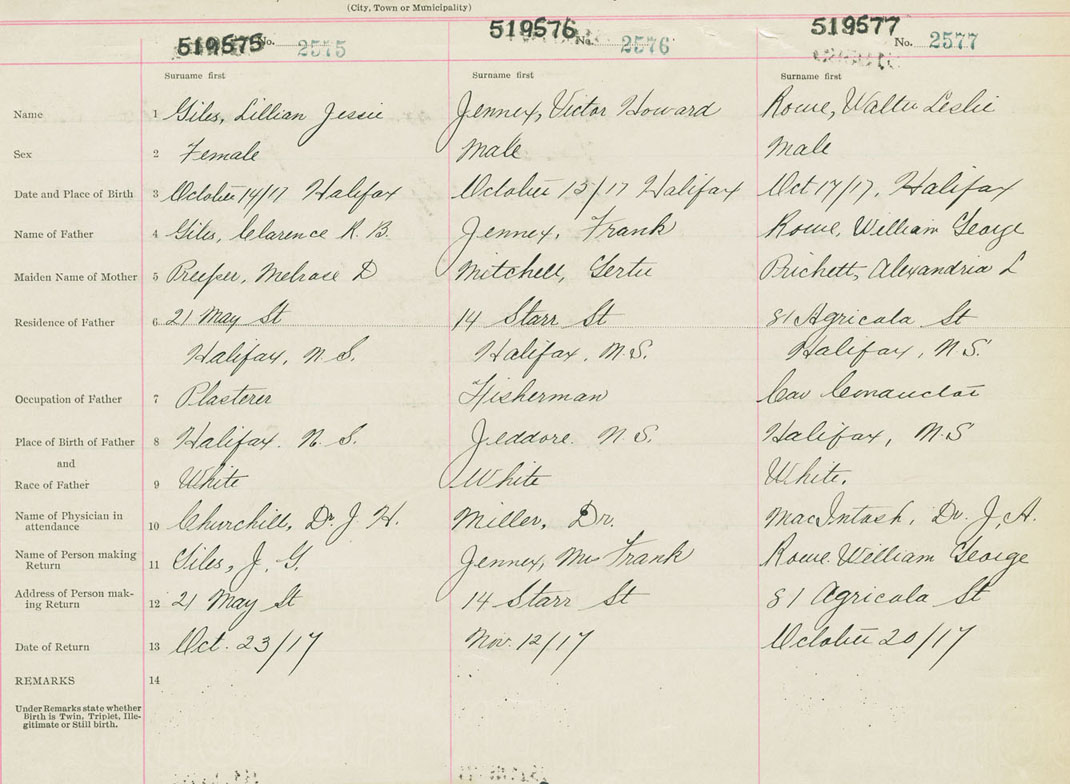 (City, Town or Municipality)
519575 No. 2575 519576 No. 2576 519577 No. 2577
Surname first Surname first Surname first
Name 1 Giles, Lillian Jessie Jennex, Victor Howard Rowe, Walter Leslie
Sex 2 Female Male Male
Date and Place of Birth 3 October 14/17 Halifax October 15/17 Halifax Oct 17/17, Halifax
Name of Father 4 Giles, Clarence R. B. Jennex, Frank Rowe, William George
Maiden Name of Mother 5 Preeper, Melrose D Mitchell, Gertie Prichett, Alexandria L
Residence of Father 6 21 May St 14 Starr St 81 Agricola St
Halifax, N.S. Halifax, N.S. Halifax, N.S.
Occupation of Father 7 Plasterer Fisherman Car Conductor
Place of Birth of Father 8 Halifax. N.S. Jeddore. N.S. Halifax, N.S
and
Race of Father 9 White White White.
Name of Physician in
attendance 10 Churchill, Dr J. H. Miller, Dr. MacIntosh, Dr. J. A.
Name of Person making
Return 11 Giles, J. G. Jennex, Mr Frank Rowe. William George
Address of Person mak-
ing Return 12 21 May St 14 Starr St 81 Agricola St
Date of Return 13 Oct. 23/17 Nov. 12/17 October 20/17
REMARKS 14
Under Remarks state whether
Birth is Twin, Triplet, Ille-
gitimate or Still birth.